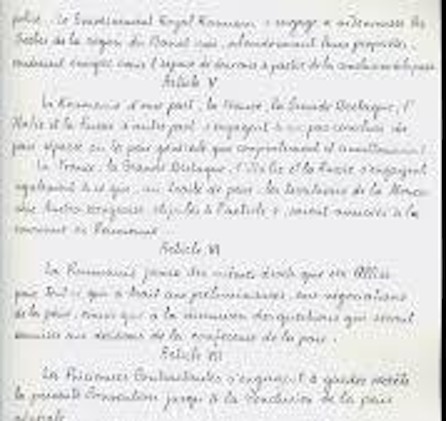 paix. Le Gouvernement Royal Roumain s'engage à indemniser les
Serbes de la région du Banat qui, abandonnant leurs propriétés,
voudraient émigrer dans l'espace de deux ans à partir de la conclusion de la paix.
Article V
La Roumanie d'une part, la France, la Grande Bretagne, l'
Italie et la Russie d'autre part s'engagent à ne pas conclure de
paix séparée ou la paix générale que conjointement et simultanément.
La France, la Grande Bretagne, l'Italie et la Russie s'engagent
également à ce que, au traité de paix, les territoires de la Monar-
chie Austro-Hongroise, stipulés à l'article 4, soient annexés à la
couronne de Roumanie.
Article VI
La Roumanie jouira des mêmes droits que ses Alliés
pour tout ce qui a trait aux préliminaires, aux négociations
de la paix, ainsi qu'à la discussion des questions qui seront
soumises aux décisions de la conférence de la paix.
Article VII
Les Puissances Contractantes s'engagent à garder secrète
la présente Convention jusqu'à la conclusion de la paix
générale.